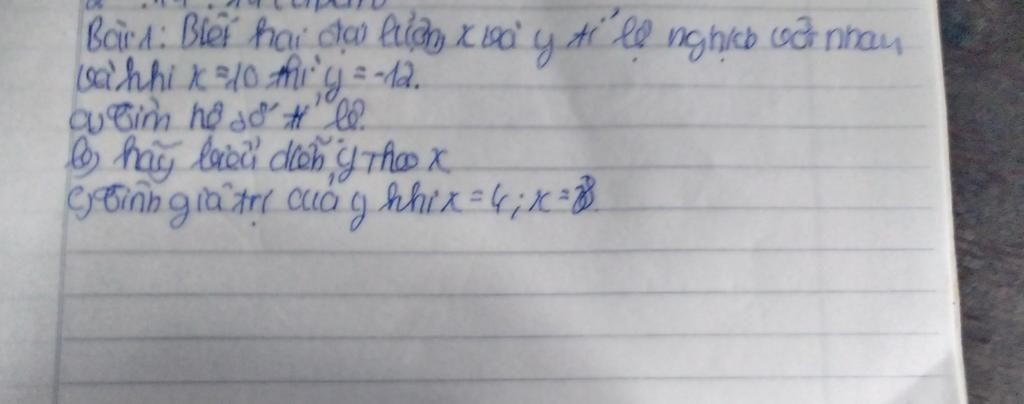 Bài 1: Biết hai đại lượng x và y tỉ lệ nghịch với nhau
và khi x = 10 thì y = -12.
a) tìm hệ số tỉ lệ.
b) hãy biểu diễn y theo x
c) tính giá trị của y khi x = 4; x = 8